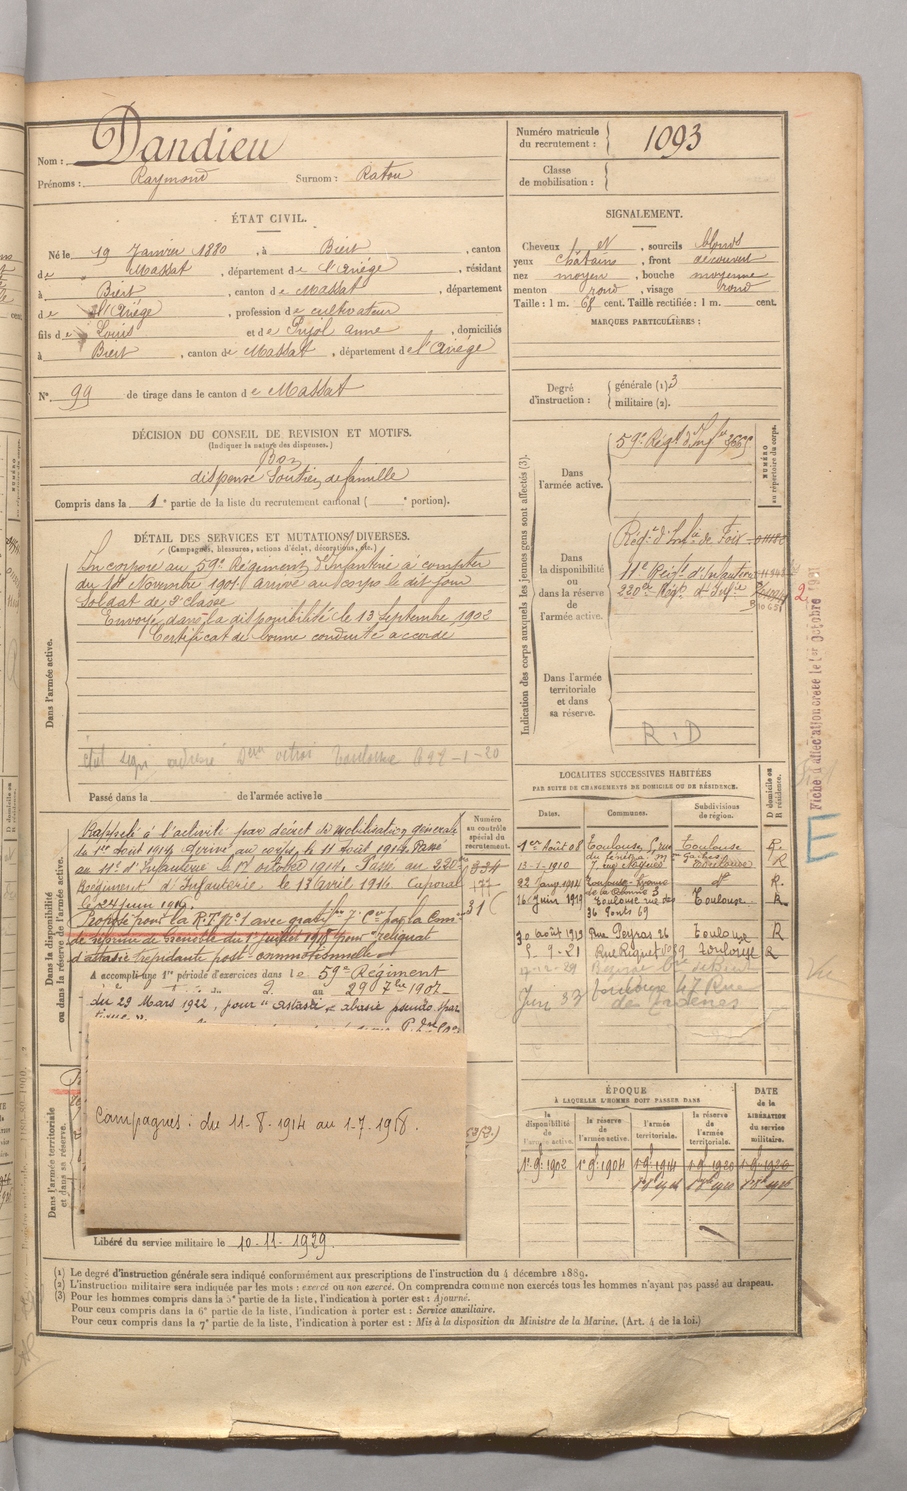 Nom : Dandieu
Prénoms : Raymond Surnom : Ratou
ÉTAT CIVIL.
Né le 19 Janvier 1880, à Biert, canton
de Massat, département de l'Ariége, résidant
à Biert, canton de Massat, département
de l'Ariége, profession de cultivateur
fils de Louis et de Pujol Anne, domiciliés
à Biert, canton de Massat, département de l'Ariége
N° 99 de tirage dans le canton de Massat
DÉCISION DU CONSEIL DE REVISION ET MOTIFS.
(Indiquer la nature des dispenses.)
Bon
dispensé Soutien de famille
Compris dans la 1e partie de la liste du recrutement cantonal ( e portion).
DÉTAIL DES SERVICES ET MUTATIONS DIVERSES.
(Campagnes, blessures, actions d'éclat, décorations, etc.)
Dans l'armée active.
Incorporé au 59e Régiment d'Infanterie à compter
du 18 Novembre 1901 arrivé au corps le dit jour
Soldat de 2e classe
Envoyé dans la disponibilité le 13 Septembre 1902
Certificat de bonne conduite accordé
Toulouse 1-20
Passé dans la de l'armée active le
Dans la disponibilité
ou dans la réserve de l'armée active.
Rappelé à l'activité par décret de mobilisation générale
du 1er août 1914 Arrivé au corps le 11 Août 1914. Passé
au 11e d'Infanterie le 17 octobre 1914. Passé au 220e
Régiment d'Infanterie le 13 avril 1916 Caporal
le 24 juin 1916.
Proposé pour la R.T. N° 1 avec par la Comon
de réforme de Grenoble du 1er juillet 1918 pour reliquat
d'astasie trépidante post-commotionnelle
A accompli une 1re période d'exercices dans le 59e Régiment
du 2 au 29 7bre 1907
du 29 Mars 1922, pour "astasie abasie pseudo
Numéro
au contrôle
spécial du
recrutement.
834
177
Campagnes : du 11-8-1914 au 1-7-1918.
Dans l'armée territoriale
et dans sa réserve.
Libéré du service militaire le 10-11-1929.
Numéro matricule
du recrutement : 1093
Classe
de mobilisation :
SIGNALEMENT.
Cheveux et, sourcils blonds
yeux châtains, front découvert
nez moyen, bouche moyenne
menton rond, visage rond
Taille : 1 m. 68 cent. Taille rectifiée : 1 m. cent.
MARQUES PARTICULIÈRES :
Degré
d'instruction :
générale (1) 3
militaire (2).
Indication des corps auxquels les jeunes gens sont affectés (3).
NUMÉRO
au répertoire du corps.
Dans
l'armée active.
59e Régt d'Infie
Dans
la disponibilité
ou
dans la réserve
de
l'armée active.
Régt d'Infie de Foix
11e Régt d'Infanterie
220e Régt d'Infie
Dans l'armée
territoriale
et dans
sa réserve.
R.D
Fiche d'affectation créée le 1er Octobre 1931
E
LOCALITES SUCCESSIVES HABITÉES
PAR SUITE DE CHANGEMENTS DE DOMICILE OU DE RÉSIDENCE.
Dates. Communes. Subdivisions
de région. D domicile ou
R résidence.
1er Août 08 Toulouse, Toulouse R.
13-1-1910 Toulouse R
22 Janv 1914 Toulouse do R.
16 Juin 1919 Toulouse rue des
36 Ponts 69 Toulouse R
30 août 1919 Rue Peyras 26 Toulouse R
5-9-21 Rue Riquet No 9 Toulouse R
Juin 33 Toulouse 47 Rue
ÉPOQUE
À LAQUELLE L'HOMME DOIT PASSER DANS
la
disponibilité
de
l'armée active.
la réserve
de
l'armée active.
l'armée
territoriale.
la réserve
de
l'armée
territoriale.
DATE
de la
LIBÉRATION
du service
militaire.
1er 9bre 1902 1er 9bre 1904 1-9-1914 1-9-1920 1-9-1926
(1) Le degré d'instruction générale sera indiqué conformément aux prescriptions de l'instruction du 4 décembre 1889.
(2) L'instruction militaire sera indiquée par les mots : exercé ou non exercé. On comprendra comme non exercés tous les hommes n'ayant pas passé au drapeau.
(3) Pour les hommes compris dans la 5e partie de la liste, l'indication à porter est : Ajourné.
Pour ceux compris dans la 6e partie de la liste, l'indication à porter est : Service auxiliaire.
Pour ceux compris dans la 7e partie de la liste, l'indication à porter est : Mis à la disposition du Ministre de la Marine. (Art. 4 de la loi.)